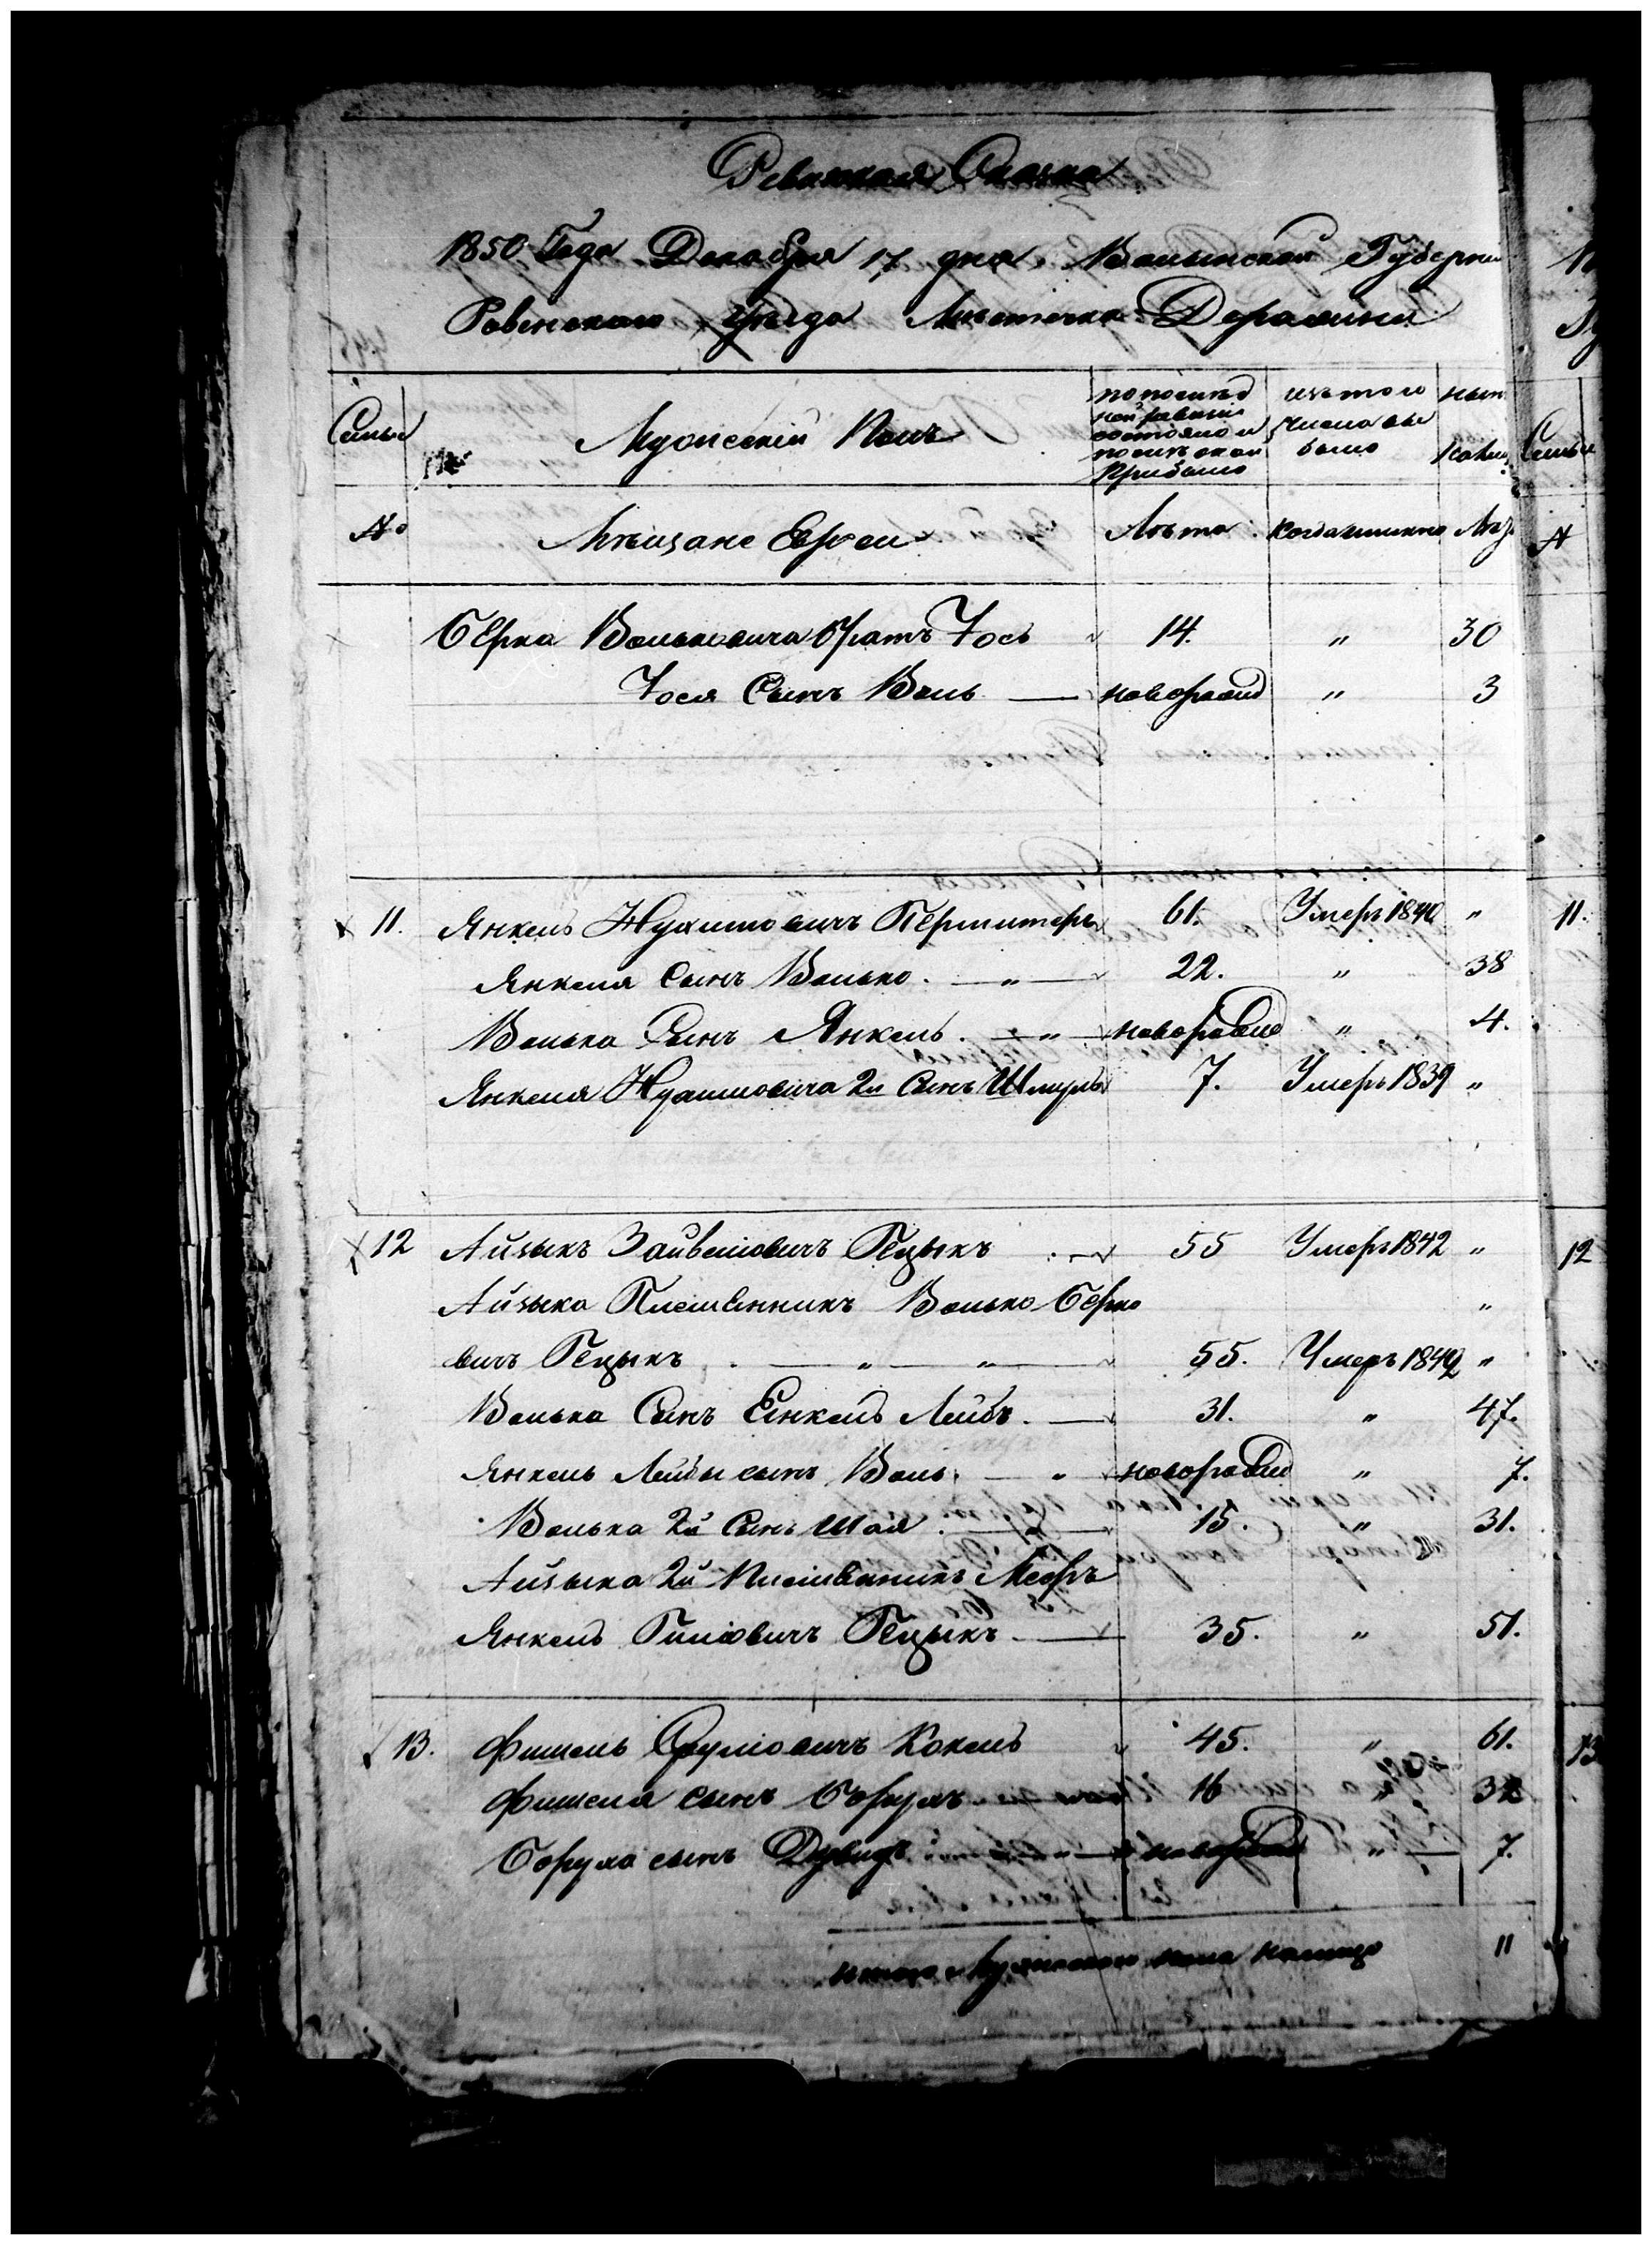 Ревизская Сказка
1850 Года Декабря 17 дня Волынской Губерни
Ровенского уезда Местечка Деражни
Семьи
Мужеский Полъ
по послед
ней ревизии
состояло и
после оной
прибыло
изъ того
числа вы
было
ныне
Семьи
№
Мещане Евреи
Лета
Когда именно
Лет
№
Берка Вольковича братъ Іось 14. " 30
Іося СынъВоль новорожд " 3
11. Янкель Нухимовичъ Перлмитеръ 61. Умеръ 1840 " 11.
Янкеля Сынъ Волько . " 22. " 38
Волька Сынъ Янкель . " новорожд " 4.
Янкеля Нухимовича 2й Сынъ Шмуль 7. Умеръ 1839 "
12 Айзыкъ Зайвеловичъ Гецыкъ 55 Умеръ 1842 " 12
Айзыка Племенникъ Волько Берко "
вичъ Гецыкъ . " " 55. Умеръ 1849 "
Волька Сынъ Енкель Лейбъ . 31. " 47.
Янкель Лейбы сынъ Воль . " новорожд " 7.
Волька 2й Сынъ Шая . 15. " 31.
Айзыка 2й Племянникъ Мееръ
Янкель Гилювичъ Гецыкъ . 35. " 51.
13. Фишель Срулювичъ Кокель 45. " 61. 13
Фишеля сынъ Борухъ 16 " 32
Боруха сынъ Дувидъ новорожд " 7.
итого Мужеского пола налицо 11